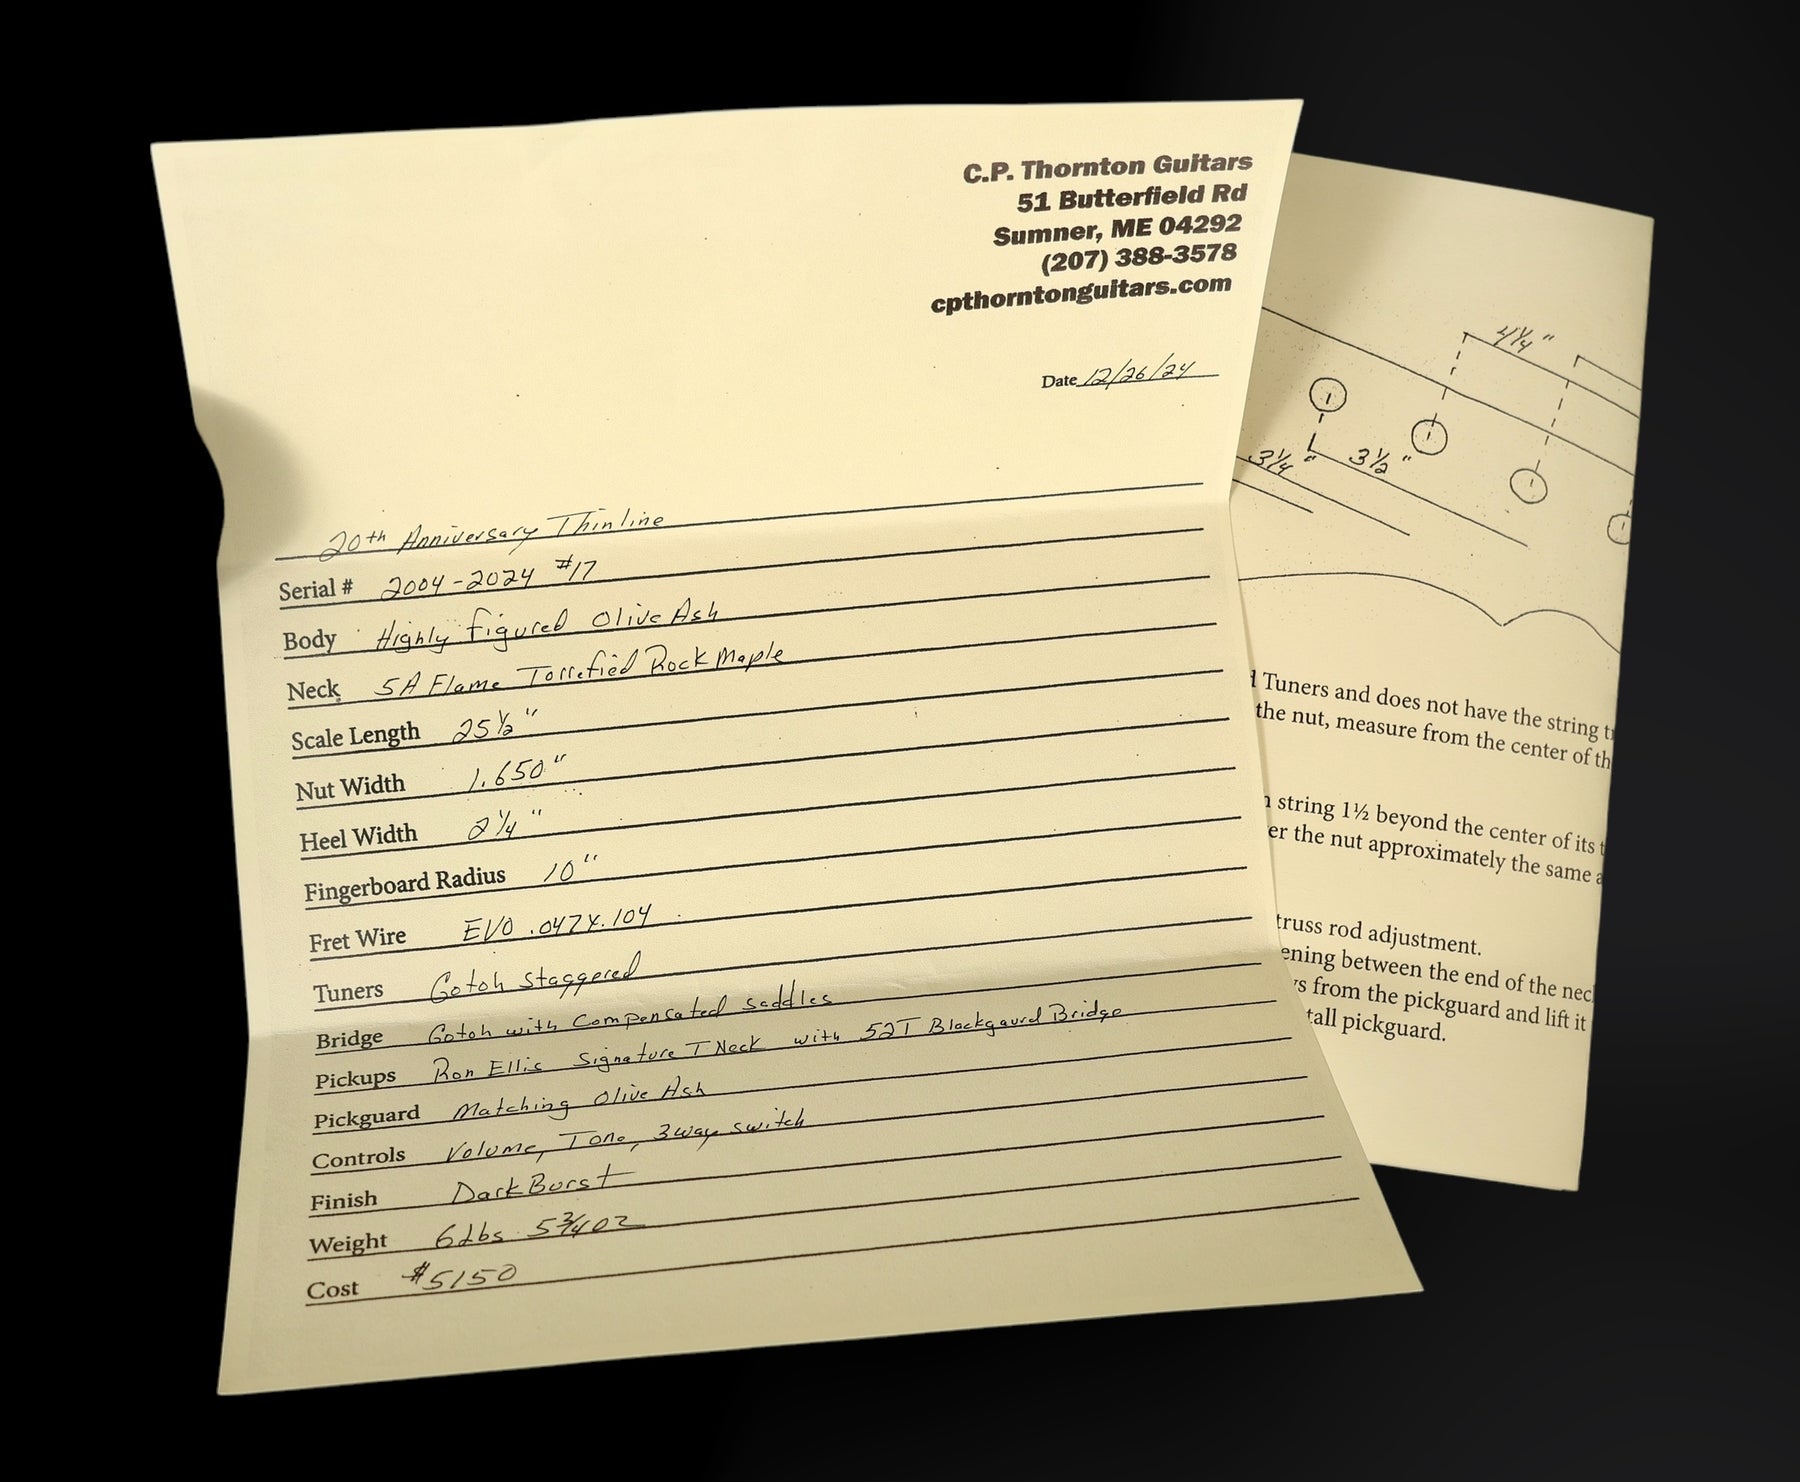 C.P. Thornton Guitars
51 Butterfield Rd
Sumner, ME 04292
(207) 388-3578
cpthorntonguitars.com
Date 12/26/24
20th Anniversary Thinline
Serial # 2004-2024 #17
Body Highly figured Olive Ash
Neck 5A Flame Torrefied Rock Maple
Scale Length 25½"
Nut Width 1.650"
Heel Width 2¼"
Fingerboard Radius 10"
Fret Wire EVO .047X.104
Tuners Gotoh Staggered
Bridge Gotoh with Compensated saddles
Pickups Ron Ellis Signature T Neck with 52T Blackgaurd Bridge
Pickguard Matching Olive Ash
Controls Volume, Tone, 3way switch
Finish Dark Burst
Weight 6Lbs 5¾oz
Cost $5150
4¼"
3¼" 3½"
Tuners and does not have the string
the nut, measure from the center of
string 1½ beyond the center of its
the nut approximately the same
truss rod adjustment.
between the end of the
from the pickguard and lift it
pickguard.